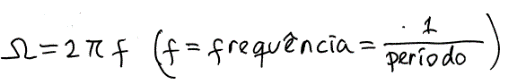 Ω = 2 π f (f = frequência = 1/período)